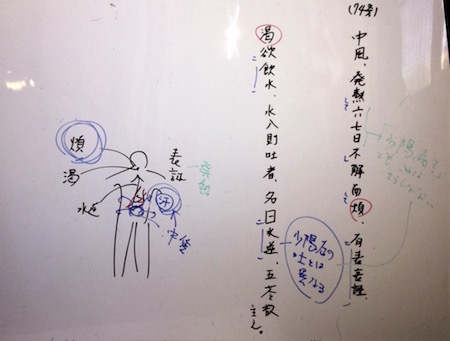 (74条)
中風、発熱六七日不解而煩、有表裏証、
渇欲飲水、水入則吐者、名曰水逆、五苓散主之。
少陽病の
吐とは
異なる
煩
渇
水逆
表証
発熱
汗
中焦